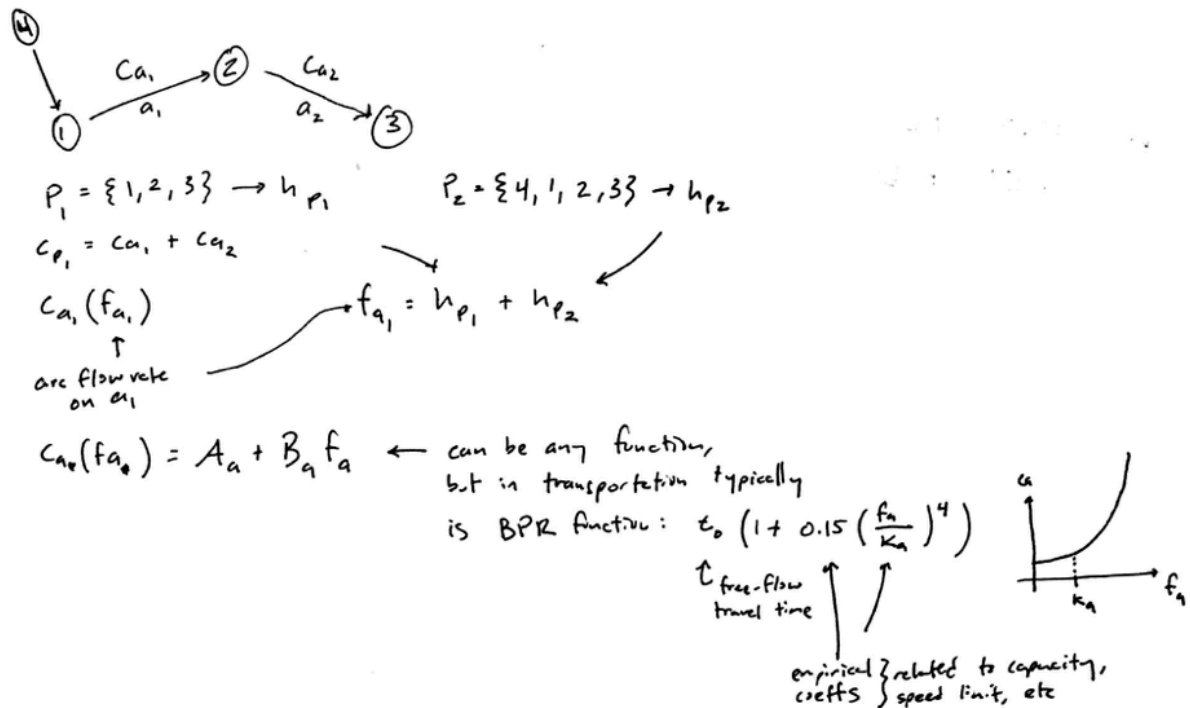 4
Ca₁ 2 Ca₂
1 a₁ a₂ 3
P₁ = {1, 2, 3} → h_p₁ P₂ = {4, 1, 2, 3} → h_p₂
C_p₁ = Ca₁ + Ca₂
Ca₁(fa₁) fa₁ = h_p₁ + h_p₂
↑
arc flow rate
on a₁
Ca(fa) = Aa + Ba fa ← can be any function,
but in transportation typically
is BPR function: t₀ (1 + 0.15 (fa/Ka)⁴)
free-flow
travel time
Ca
Ka
fa
empirical } related to capacity,
coeffs } speed limit, etc